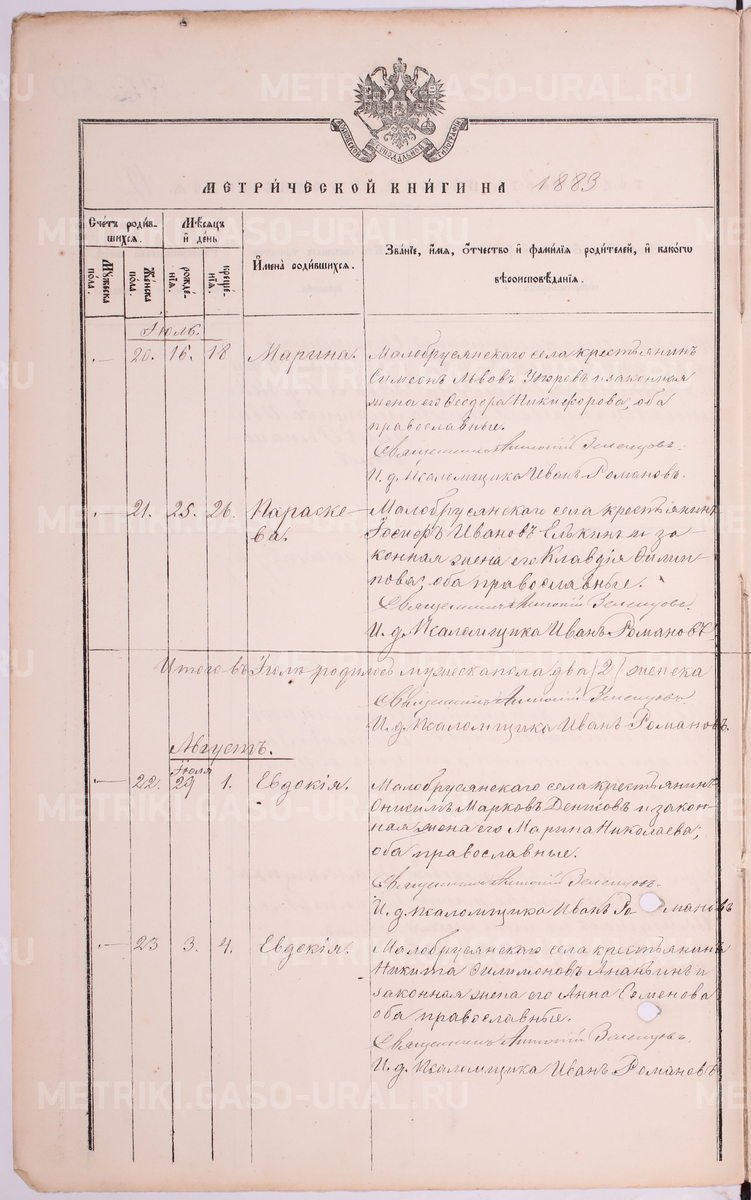 METRIKI.GASO-URAL.RU
МОСКОВСКОЙ СѴНОДАЛЬНОЙ ТИПОГРАФІИ
МЕТРИ́ЧЕСКОЙ КНИ́ГИ НА 1883
Счетъ роди́вшихся.
Мѣ́сяцъ и день
Имена̀ роди́вшихся.
Зва́ніе, и́мя, о́тчество и фами́лія роди́телей, и како́гѡ вѣроисповѣ́данія.
Му́жеска по́ла.
Же́нска по́ла.
рожде́нія.
креще́нія.
Іюль.
20. 16. 18 Марина.
Малобрусянскаго села крестьянинъ
Симеонъ Львовъ и законная
жена его Ѳеодора Никифорова, оба
православные.
Священникъ Антоній Зеленцовъ.
И. д. Псаломщика Иванъ Романовъ.
21. 25. 26. Параскева.
Малобрусянскаго села крестьянинъ
Іосифъ Ивановъ Елькинъ и за-
конная жена его Клавдія Филип-
пова, оба православные.
Священникъ Антоній Зеленцовъ.
И. д. Псаломщика Иванъ Романовъ
Итого въ Іюлѣ родилось мужеска пола два /2/ женска
Священникъ Антоній Зеленцовъ
И. д. Псаломщика Иванъ Романовъ.
Августъ.
Іюля
22. 29 1. Евдокія.
Малобрусянскаго села крестьянинъ
Онисимъ Марковъ Денисовъ и закон-
ная жена его Марина Николаева,
оба православные.
Священникъ Антоній Зеленцовъ.
И. д. Псаломщика Иванъ Романовъ
23 3. 4. Евдокія.
Малобрусянскаго села крестьянинъ
Никита Филимоновъ Ананьинъ и
законная жена его Анна Семенова
оба православные.
Священникъ Антоній Зеленцовъ.
И. д. Псаломщика Иванъ Романовъ